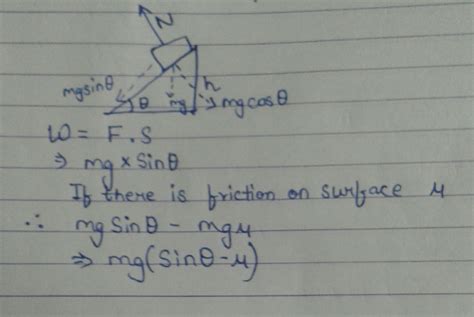 N
mgsinθ
θ
mg
h
mgcosθ
W = F.S
⇒ mg × Sinθ
If there is friction on surface μ
∴ mgSinθ - mgμ
⇒ mg(Sinθ-μ)